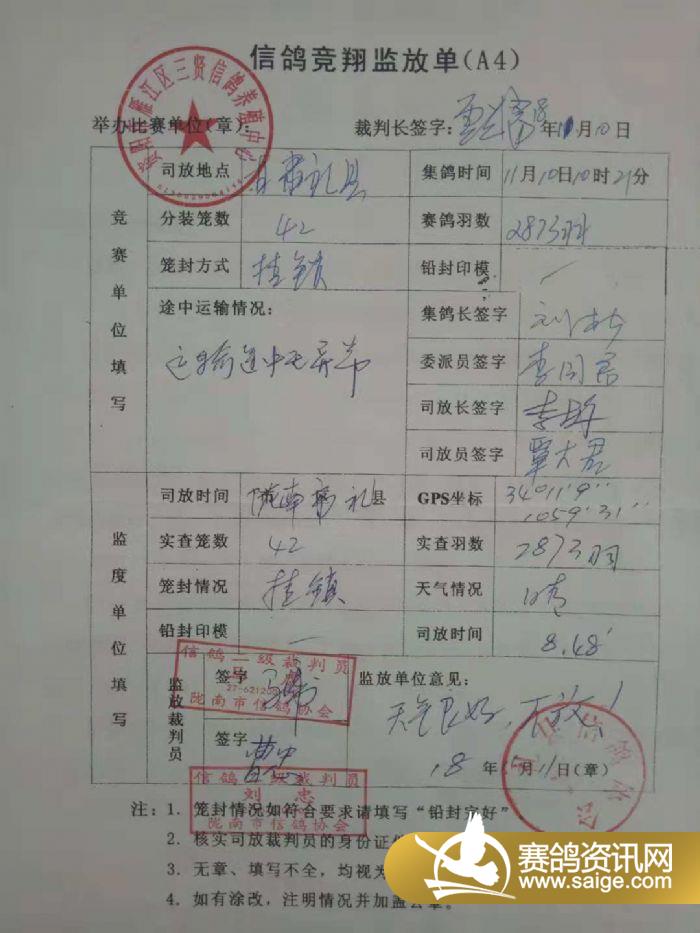 信鸽竞翔监放单(A4)
举办比赛单位(章): 裁判长签字: 18年11月10日
雁江区三贤信鸽养殖中心
竞赛单位填写
司放地点 甘肃礼县 集鸽时间 11月10日10时21分
分装笼数 42 赛鸽羽数 2873羽
笼封方式 挂锁 铅封印模 一
途中运输情况: 集鸽长签字
运输途中无异常 委派员签字
司放长签字
司放员签字 覃大君
监度单位填写
司放时间 陇南市礼县 GPS坐标 34011'9''
1059'31''
实查笼数 42 实查羽数 2873羽
笼封情况 挂锁 天气情况 晴
铅封印模 一 司放时间 8.48'
监放裁判员
签字
信鸽二级裁判员
陇南市信鸽协会
签字
信鸽 级裁判员
刘 忠
陇南市信鸽协会
监放单位意见:
天气良好,
18年11月11日(章)
注:1. 笼封情况如符合要求请填写“铅封完好”
2. 核实司放裁判员的身份证
3. 无章、填写不全,均视为
4. 如有涂改,注明情况并加盖公章。
赛鸽资讯网
www.saige.com